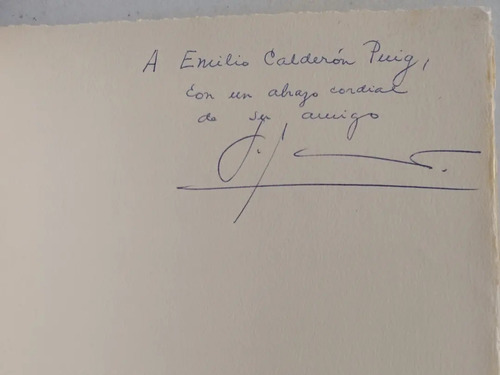 A Emilio Calderón Puig,
con un abrazo cordial
de su amigo